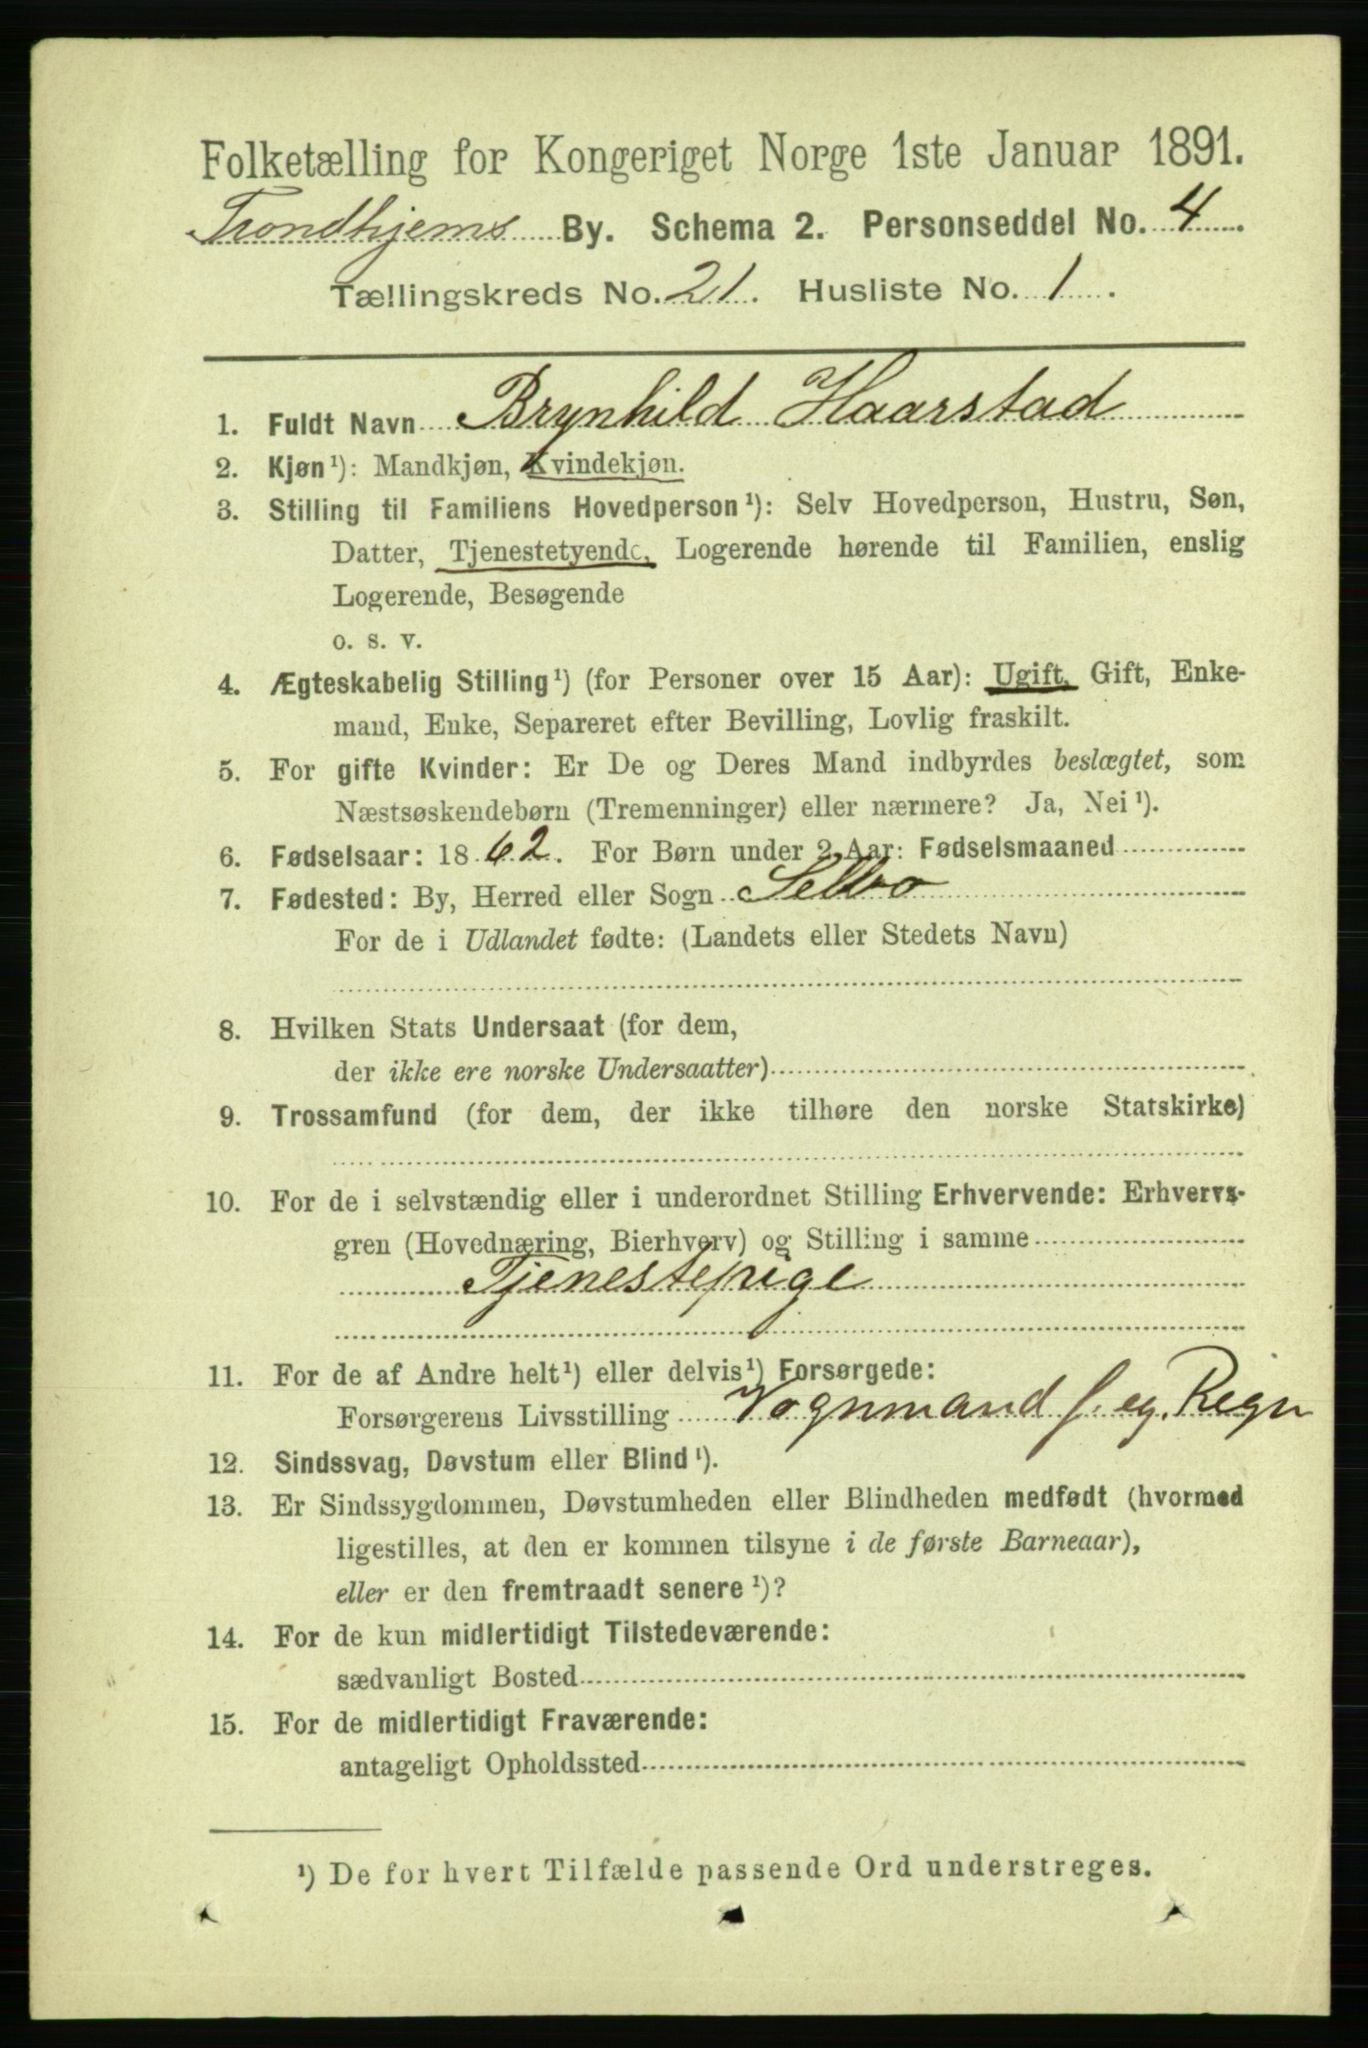 Folketælling for Kongeriget Norge 1ste Januar 1891.
Trondhjems By. Schema 2. Personseddel No. 4.
Tællingskreds No. 21. Husliste No. 1.
1. Fuldt Navn Brynhild Haarstad
2. Kjøn¹): Mandkjøn, Kvindekjøn.
3. Stilling til Familiens Hovedperson¹): Selv Hovedperson, Hustru, Søn,
Datter, Tjenestetyende, Logerende hørende til Familien, enslig
Logerende, Besøgende
o. s. v.
4. Ægteskabelig Stilling¹) (for Personer over 15 Aar): Ugift, Gift, Enke-
mand, Enke, Separeret efter Bevilling, Lovlig fraskilt.
5. For gifte Kvinder: Er De og Deres Mand indbyrdes beslægtet, som
Næstsøskendebørn (Tremenninger) eller nærmere? Ja, Nei¹).
6. Fødselsaar: 1862. For Børn under 2 Aar: Fødselsmaaned
7. Fødested: By, Herred eller Sogn Selbo
For de i Udlandet fødte: (Landets eller Stedets Navn)
8. Hvilken Stats Undersaat (for dem,
der ikke ere norske Undersaatter)
9. Trossamfund (for dem, der ikke tilhøre den norske Statskirke)
10. For de i selvstændig eller i underordnet Stilling Erhvervende: Erhvervs-
gren (Hovednæring, Bierhverv) og Stilling i samme
Tjenestepige
11. For de af Andre helt¹) eller delvis¹) Forsørgede:
Forsørgerens Livsstilling Vognmand f. eg. Regn
12. Sindssvag, Døvstum eller Blind¹).
13. Er Sindssygdommen, Døvstumheden eller Blindheden medfødt (hvormed
ligestilles, at den er kommen tilsyne i de første Barneaar),
eller er den fremtraadt senere¹)?
14. For de kun midlertidigt Tilstedeværende:
sædvanligt Bosted
15. For de midlertidigt Fraværende:
antageligt Opholdssted
¹) De for hvert Tilfælde passende Ord understreges.